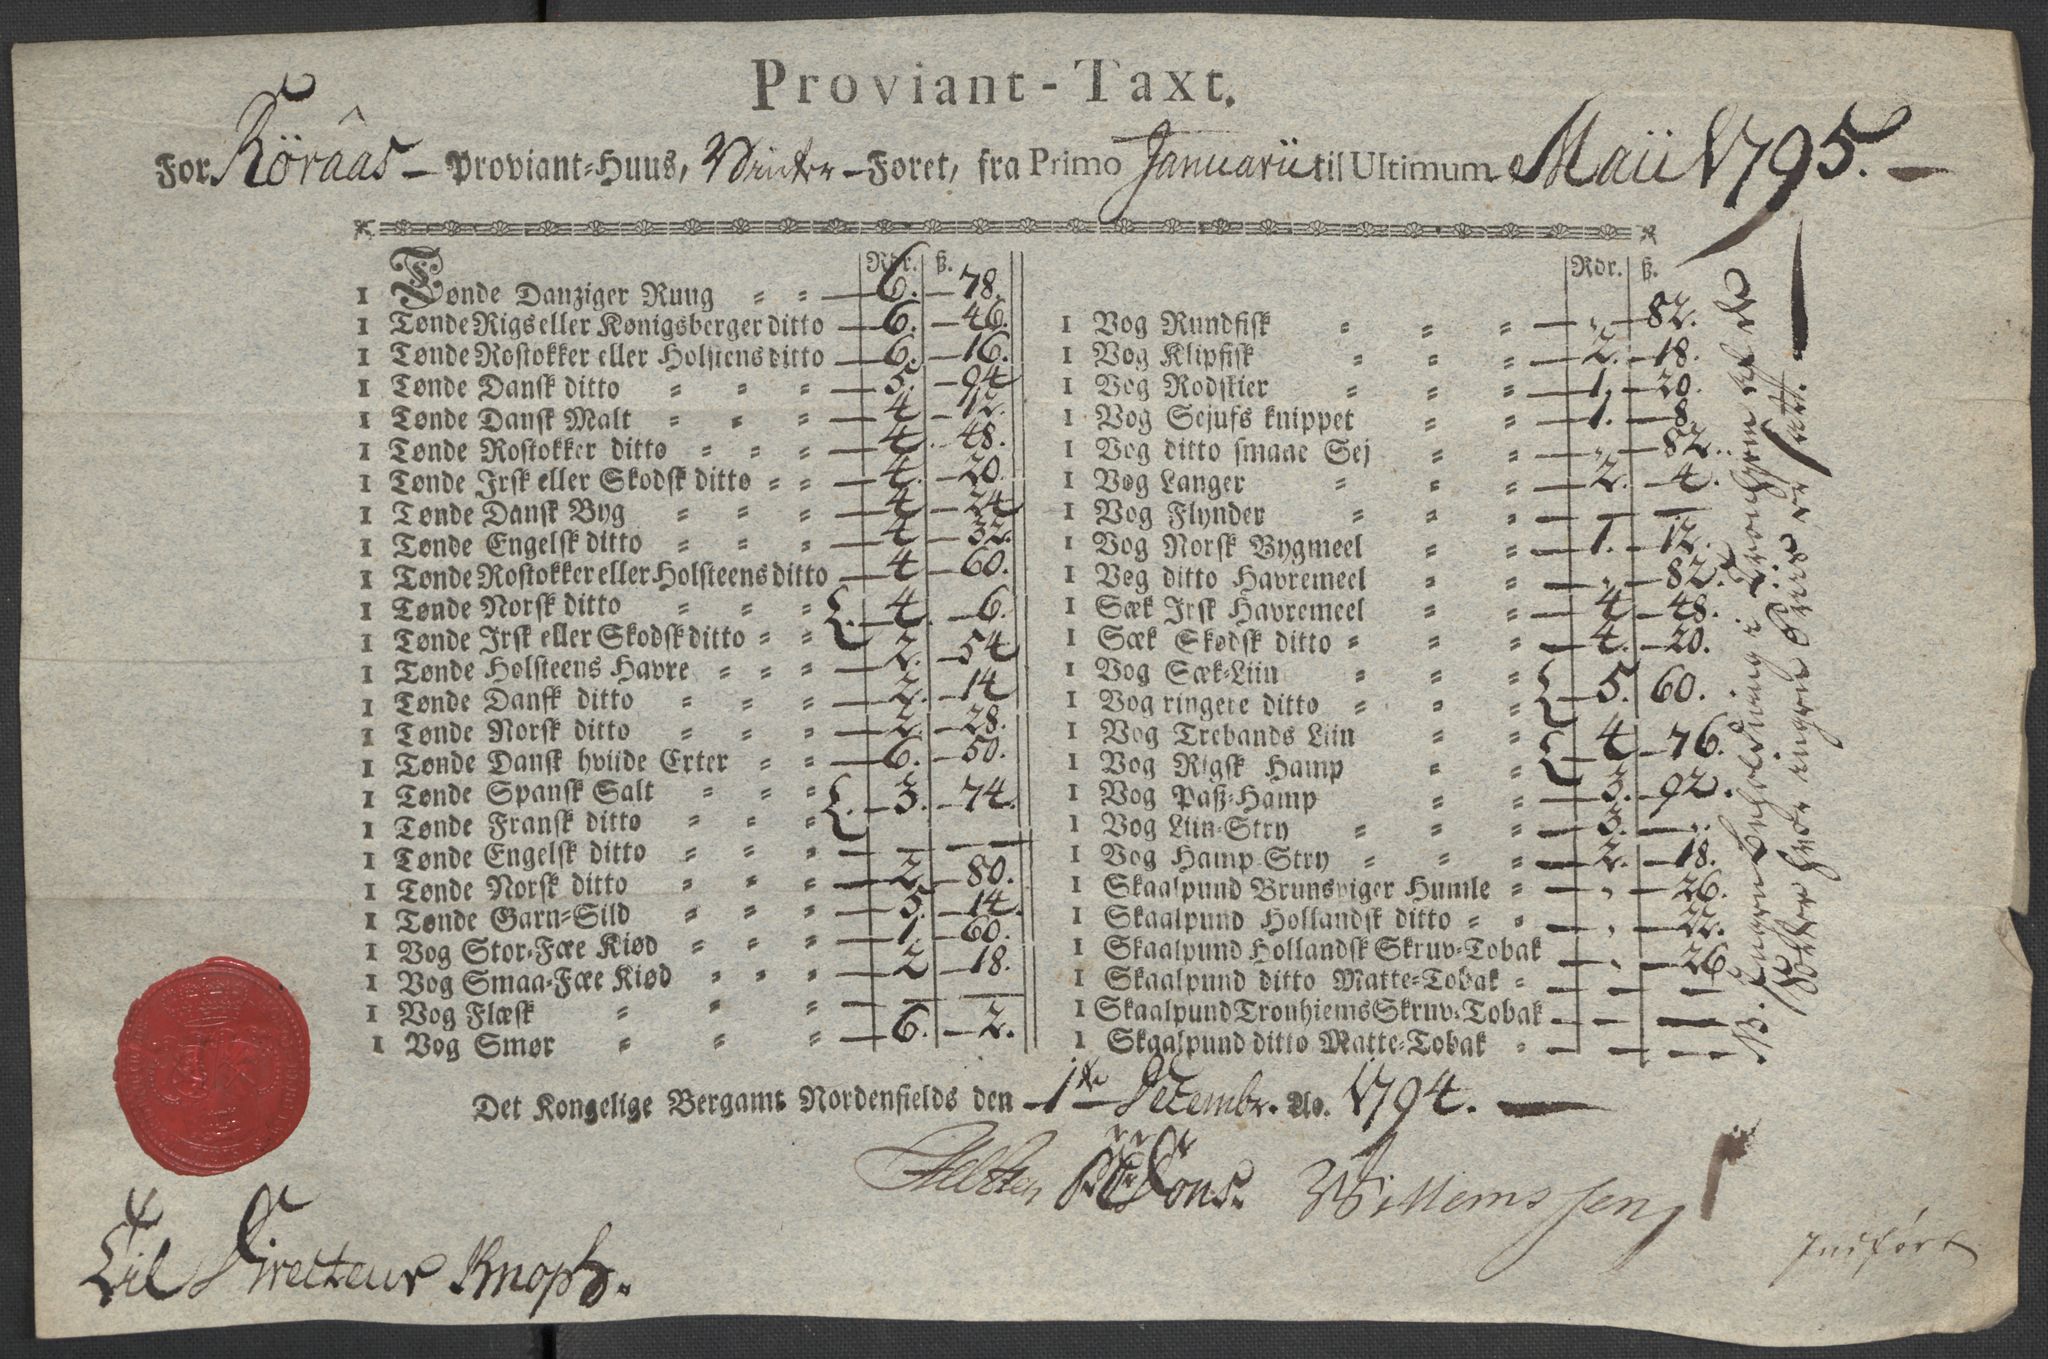 Proviant-Taxt.
For Röraas – Proviant-Huus, Winter – Foret, fra Primo Januarii til Ultimum Maii 1795. –
Rdr. ß.
1 Tønde Danziger Ruug – 6. – 78.
1 Tønde Rigs eller Kønigsberger ditto – 6. – 46.
1 Tønde Rostokker eller Holstens ditto – 6. – 16.
1 Tønde Dansk ditto – 5. – 94
1 Tønde Dansk Malt – 4 – 12.
1 Tønde Rostokker ditto – 4. – 48.
1 Tønde Irsk eller Skodsk ditto – 4. – 20.
1 Tønde Dansk Byg – 4 – 24
1 Tønde Engelsk ditto – 4 – 32.
1 Tønde Rostokker eller Holsteens ditto – 4 – 60.
1 Tønde Norsk ditto { 4. – 6.
1 Tønde Irsk eller Skodsk ditto
1 Tønde Holsteens Havre – 2. – 54
1 Tønde Dansk ditto – 2. – 14
1 Tønde Norsk ditto – 2. – 28.
1 Tønde Dansk hviide Erter – 6. – 50.
1 Tønde Spansk Salt { 3. – 74.
1 Tønde Fransk ditto
1 Tønde Engelsk ditto – – –
1 Tønde Norsk ditto – 2. – 80.
1 Tønde Garn-Sild – 5. – 14.
1 Vog Stor-Fæe Kiød – 1. – 60.
1 Vog Smaa-Fæe Kiød – 2 – 18.
1 Vog Flæsk – – –
1 Vog Smør – 6. – 2.
Rdr. ß.
1 Vog Rundfisk – „ – 82.
1 Vog Klipfisk – 2. – 18.
1 Vog Rodskier – 1. – 20.
1 Vog Sejufs knippet – 1. – 8.
1 Vog ditto smaae Sej – „ – 82.
1 Vog Langer – 2. – 4.
1 Vog Flynder – – –
1 Vog Norsk Bygmeel – 1. – 12.
1 Vog ditto Havremeel – „ – 82.
1 Sæk Irsk Havremeel – 4 – 48.
1 Sæk Skodsk ditto – 4. – 20.
1 Vog Sæk-Liin { 5. 60.
1 Vog ringere ditto
1 Vog Trebands Liin { 4 – 76.
1 Vog Rigsk Hamp
1 Vog Paß-Hamp – 3. – 92.
1 Vog Liin-Stry – 3. – „
1 Vog Hamp-Stry – 2. – 18.
1 Skaalpund Brunsviger Humle – „ – 26.
1 Skaalpund Hollandsk ditto – „ – 22.
1 Skaalpund Hollandsk Skruv-Tobak – „ – 26
1 Skaalpund ditto Matte-Tobak – – –
1 Skaalpund Tronhiems Skruv-Tobak – – –
1 Skaalpund ditto Matte-Tobak – – –
Ingen beholdning i Tronhiem af de
Sorter hvor ingen Priis er satt.
Det Kongelige Bergamt Nordenfields den 1te Decembr. Ao. 1794. –
Willemssen
Indført
Til Directeur Knoph.